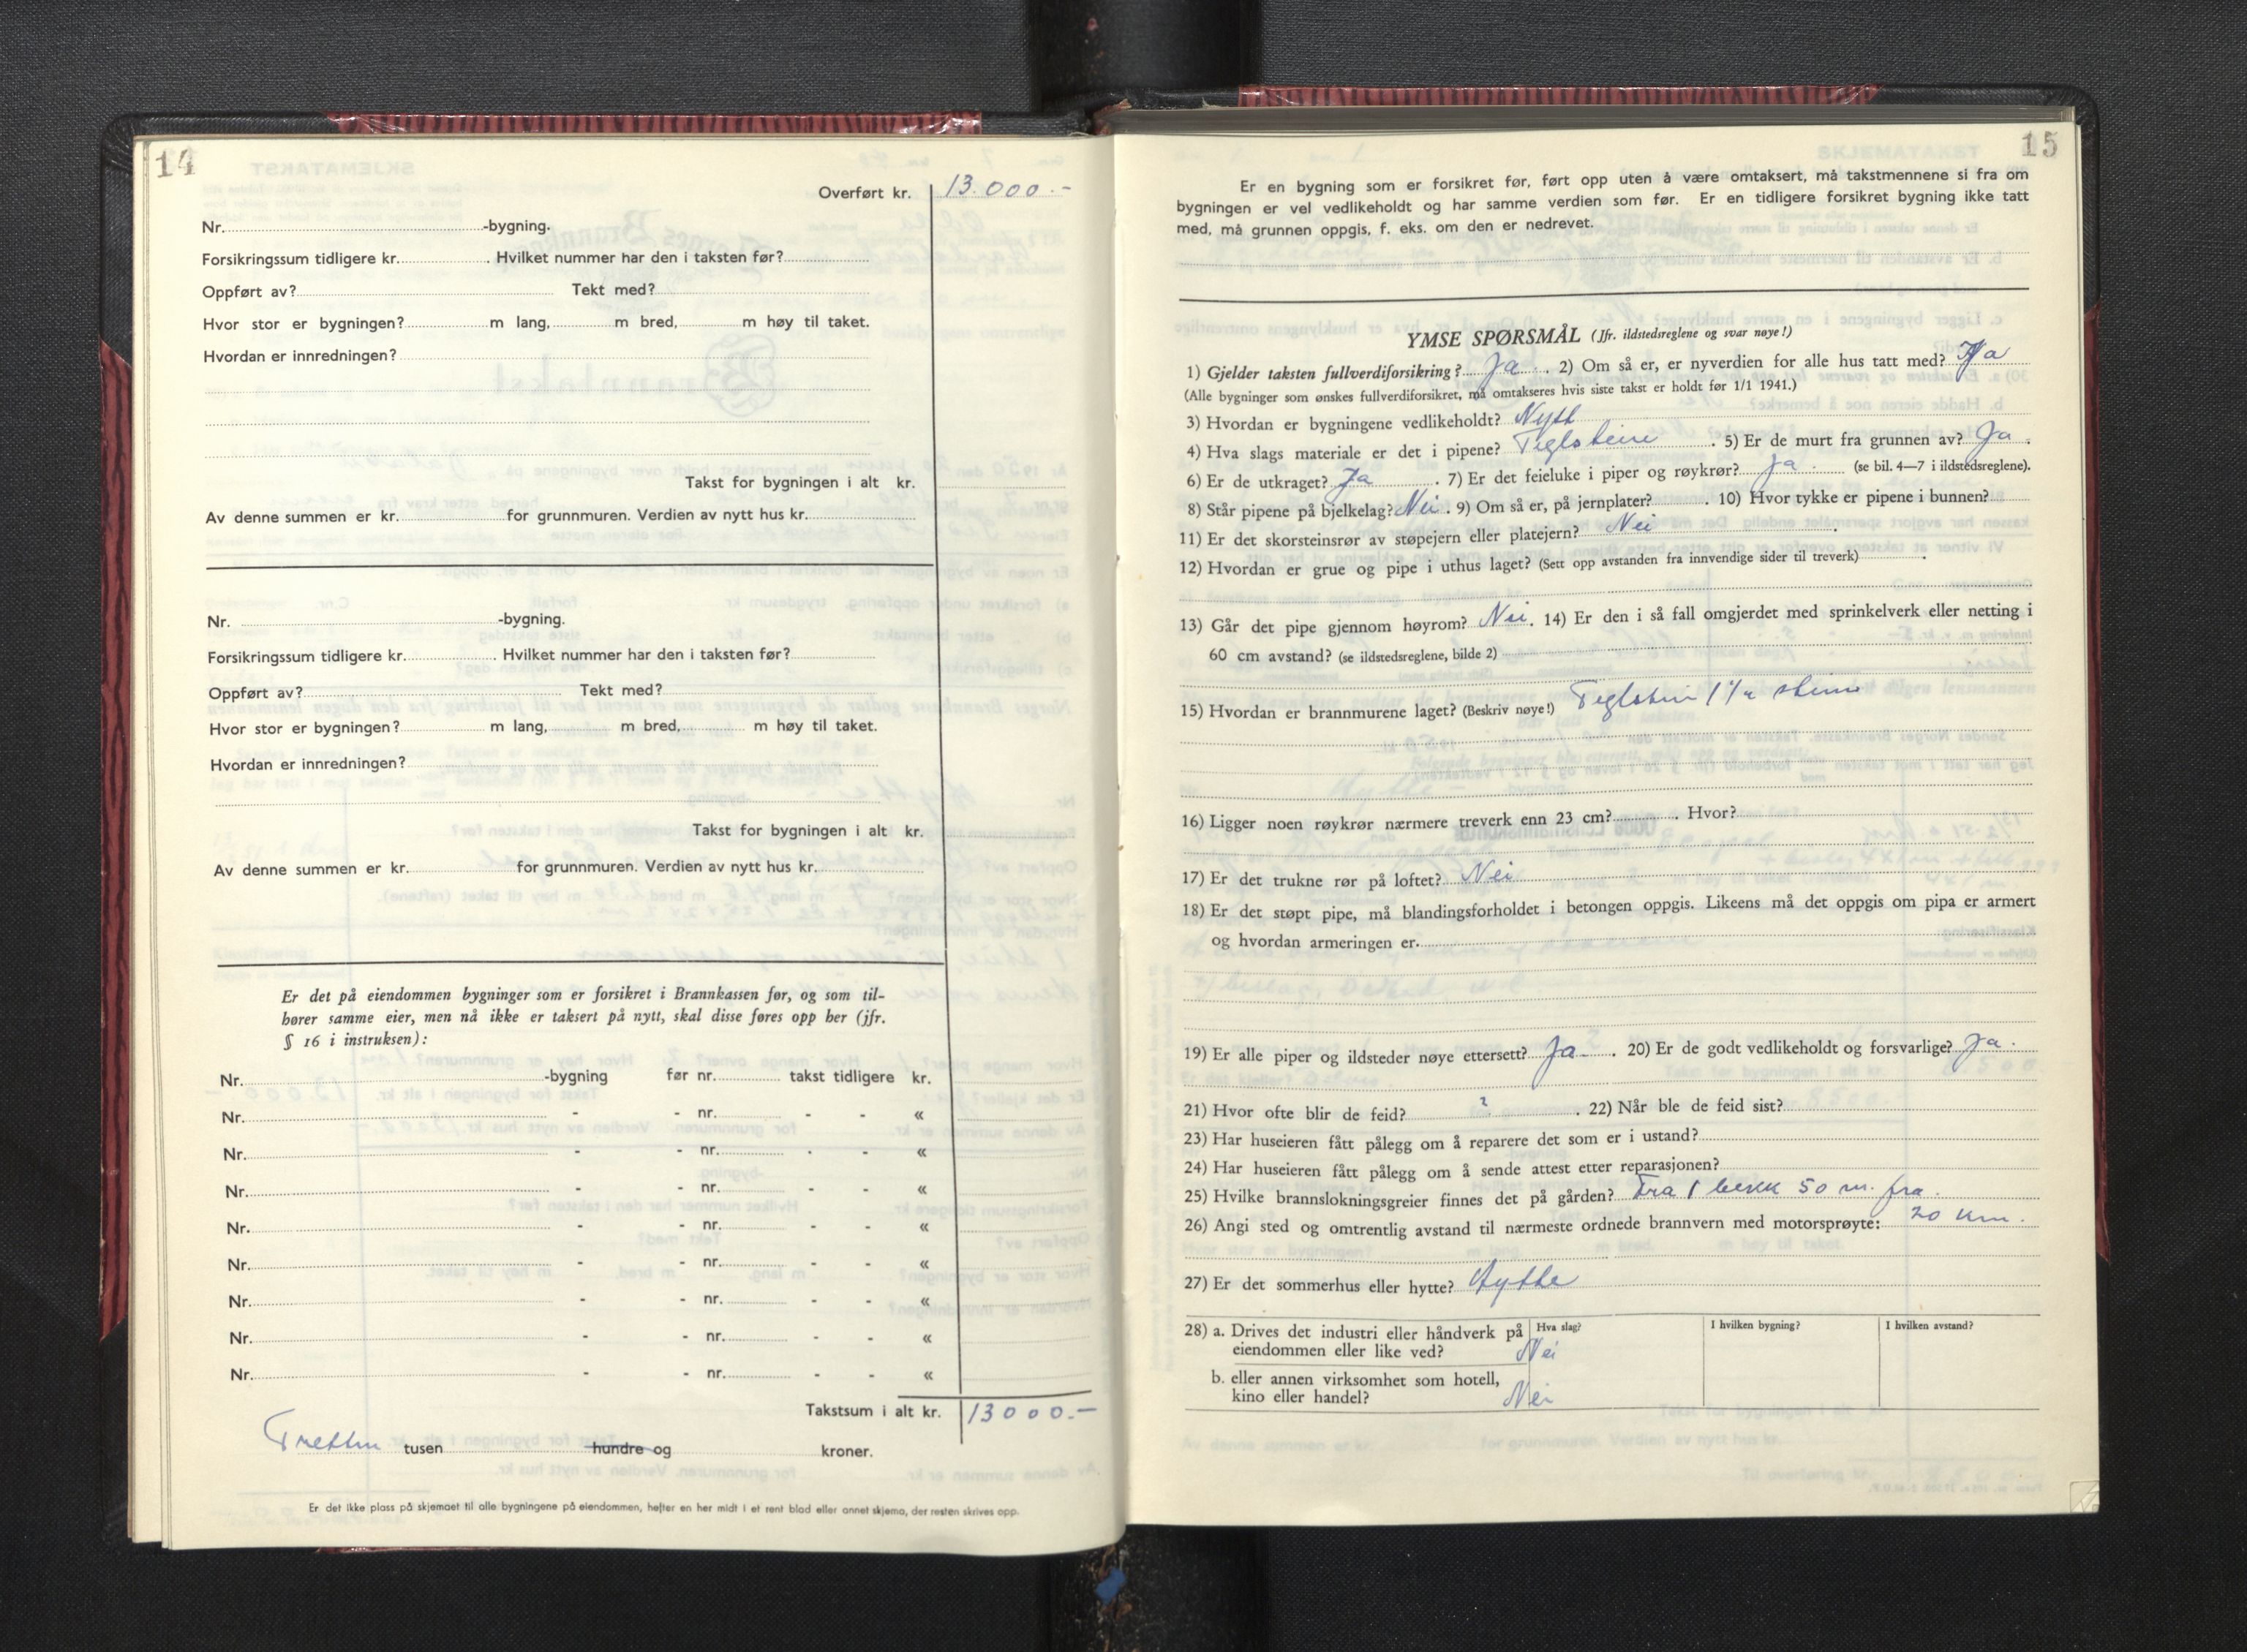 14
Overført kr. 13.000.-
Nr. -bygning.
Forsikringssum tidligere kr. . Hvilket nummer har den i taksten før?
Oppført av? Tekt med?
Hvor stor er bygningen? m lang, m bred, m høy til taket.
Hvordan er innredningen?
Takst for bygningen i alt kr.
Av denne summen er kr. for grunnmuren. Verdien av nytt hus kr.
Nr. -bygning.
Forsikringssum tidligere kr. . Hvilket nummer har den i taksten før?
Oppført av? Tekt med?
Hvor stor er bygningen? m lang, m bred, m høy til taket.
Hvordan er innredningen?
Takst for bygningen i alt kr.
Av denne summen er kr. for grunnmuren. Verdien av nytt hus kr.
Er det på eiendommen bygninger som er forsikret i Brannkassen før, og som til-
hører samme eier, men nå ikke er taksert på nytt, skal disse føres opp her (jfr.
§ 16 i instruksen):
Nr. -bygning før nr. takst tidligere kr.
Nr. - - nr. - - «
Nr. - - nr. - - «
Nr. - - nr. - - «
Nr. - - nr. - - «
Nr. - - nr. - - «
Nr. - - nr. - - «
Nr. - - nr. - - «
Nr. - - nr. - - «
Takstsum i alt kr. 13000.-
Tretten tusen hundre og kroner.
Er det ikke plass på skjemaet til alle bygningene på eiendommen, hefter en her midt i et rent blad eller annet skjema, der resten skrives opp.
15
Er en bygning som er forsikret før, ført opp uten å være omtaksert, må takstmennene si fra om
bygningen er vel vedlikeholdt og har samme verdien som før. Er en tidligere forsikret bygning ikke tatt
med, må grunnen oppgis, f. eks. om den er nedrevet.
YMSE SPØRSMÅL (Jfr. ildstedsreglene og svar nøye!)
1) Gjelder taksten fullverdiforsikring? Ja . 2) Om så er, er nyverdien for alle hus tatt med? Ja
(Alle bygninger som ønskes fullverdiforsikret, må omtakseres hvis siste takst er holdt før 1/1 1941.)
3) Hvordan er bygningene vedlikeholdt? Nytt
4) Hva slags materiale er det i pipene? Teglstein . 5) Er de murt fra grunnen av? Ja .
6) Er de utkraget? Ja . 7) Er det feieluke i piper og røykrør? Ja (se bil. 4—7 i ildstedsreglene).
8) Står pipene på bjelkelag? Nei . 9) Om så er, på jernplater? . 10) Hvor tykke er pipene i bunnen?
11) Er det skorsteinsrør av støpejern eller platejern? Nei .
12) Hvordan er grue og pipe i uthus laget? (Sett opp avstanden fra innvendige sider til treverk) .
13) Går det pipe gjennom høyrom? Nei . 14) Er den i så fall omgjerdet med sprinkelverk eller netting i
60 cm avstand? (se ildstedsreglene, bilde 2)
15) Hvordan er brannmurene laget? (Beskriv nøye!) Teglstein 1
16) Ligger noen røykrør nærmere treverk enn 23 cm? . Hvor?
17) Er det trukne rør på loftet? Nei
18) Er det støpt pipe, må blandingsforholdet i betongen oppgis. Likeens må det oppgis om pipa er armert
og hvordan armeringen er.
19) Er alle piper og ildsteder nøye ettersett? Ja . 20) Er de godt vedlikeholdt og forsvarlige? Ja.
21) Hvor ofte blir de feid? ? . 22) Når ble de feid sist?
23) Har huseieren fått pålegg om å reparere det som er i ustand?
24) Har huseieren fått pålegg om å sende attest etter reparasjonen?
25) Hvilke brannslokningsgreier finnes det på gården? Fra 1 bekk 50 m. fra.
26) Angi sted og omtrentlig avstand til nærmeste ordnede brannvern med motorsprøyte: 20 km.
27) Er det sommerhus eller hytte? Hytte
28) a. Drives det industri eller håndverk på Hva slag? I hvilken bygning? I hvilken avstand?
eiendommen eller like ved? Nei
b. eller annen virksomhet som hotell,
kino eller handel? Nei